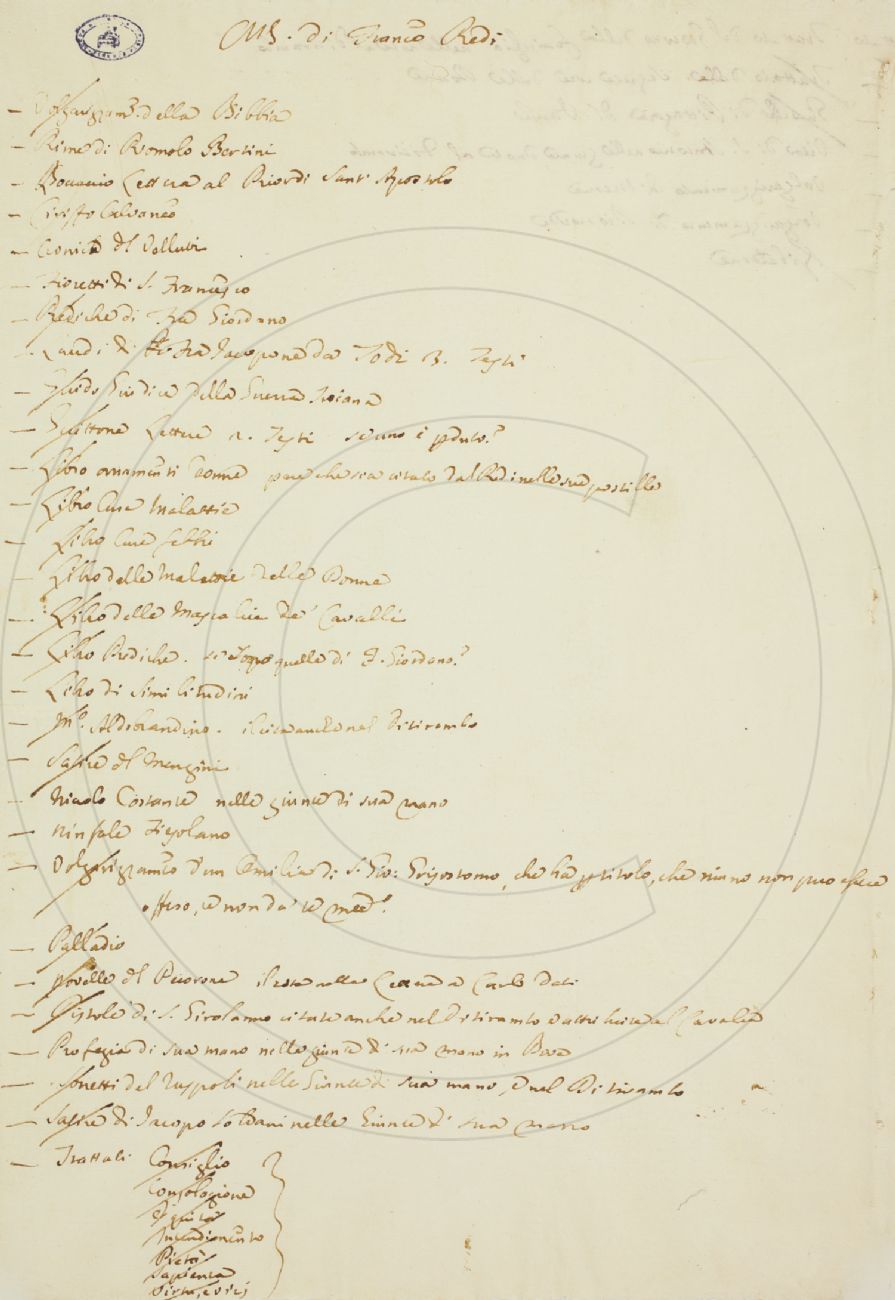 MS. di Franco Redi
— Volgarizzam. della Bibbia
— Rime di Romolo Bertini
— Boccaccio Lettera al Priordi Sant' Apostolo
— Ciriffo Calvaneo
— Cronica del Velluti
— Fioretti di S. Francesco
— Prediche di Fra Giordano
— Laudi di Fra Jacopone da Todi 3. Testi
— Guido Giudice della Guerra Troiana
— Guittone Lettere 2. Testi
— Libro ornamenti donne pare che sia citato dal Redi nelle sue postille
— Libro Cura Malattie
— Libro Cura febbri
— Libro delle Malattie delle Donne
— Libro delle Mascalcie de' Cavalli
— Libro Prediche. se sono quelle di F. Giordano?
— Libro di Similitudini
— Mo. Aldobrandino. il cita anche nel Ditirambo
— Satire del Menzini
— Nicolo Costante nelle giunte di sua mano
— Ninfale Fiesolano
— Volgarizzamto d'un Omilia di S. Gio: Grisostomo, che ha p titolo, che niuno non puo essere
offeso, se non da se medo.
— Palladio
— Novelle del Pecorone il cita nella Lettera a Carlo Dati
— Pistole di S. Girolamo citate anche nel Ditirambo e attribuite al Cavalca
— Profezia di sua mano nelle giunte di sua mano in
— Sonetti del Ruspoli nelle Giunte di sua mano, e nel Ditirambo
— Satire di Jacopo Soldani nelle Giunte di sua mano
— Trattati Consiglio
Consolazione
Equità
Intendimento
Pietà
Sapienza
Virtù, e vizi